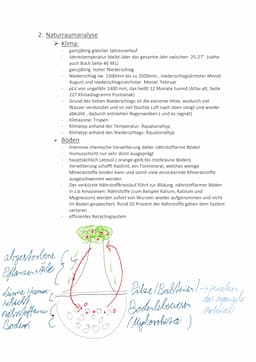 2. Naturraumanalyse
➤ Klima:
- ganzjährig gleicher Jahresverlauf
- Jahrestemperatur bleibt über das gesamte Jahr zwischen 25-27° (siehe auch Buch Seite 46 M1)
- ganzjährig hoher Niederschlag
- Niederschlag bei 1500mm bis zu 3500mm, niederschlagsärmster Monat August und niederschlagsreichster Monat: Februar
- pLV von ungefähr 1400 mm, das heißt 12 Monate humid (Atlas alt, Seite 227 Klimadiagramm Pontianak)
- Grund des hohen Niederschlags ist die extreme Hitze, wodurch viel Wasser verdunstet und so viel feuchte Luft nach oben steigt und wieder abkühlt, dadurch entstehen Regenwolken ( und es regnet)
- Klimazone: Tropen
- Klimatyp anhand der Temperatur: Äquatorialtyp
- Klimatyp anhand des Niederschlags: Äquatorialtyp
➤ Boden
- Intensive chemische Verwitterung daher nährstoffarme Böden
- Humusschicht nur sehr dünn ausgeprägt
- hauptsächlich Latosol ( orange-gelb bis rostbraune Böden)
- Verwitterung schafft Kaolinit, ein Tonmineral, welches wenige Mineralstoffe binden kann und somit viele einsickernde Mineralstoffe ausgeschwemmt werden
- Der verkürzte Nährstoffkreislauf führt zur Bildung nährstoffarmer Böden in z.b Amazonien: Nährstoffe (zum Beispiel Kalium, Kalzium und Magnesium) werden sofort von Wurzeln wieder aufgenommen und nicht im Boden gespeichert. Rund 20 Prozent der Nährstoffe gehen dem System verloren
- effizientes Recyclingsystem
abgestorbene
Pflanzenteile
dünne Humus-
schicht
nährstoffarmer
Boden
Pilze/Bakterien/
Bodenlebewesen
(Mykorrhiza)
das organische
Material